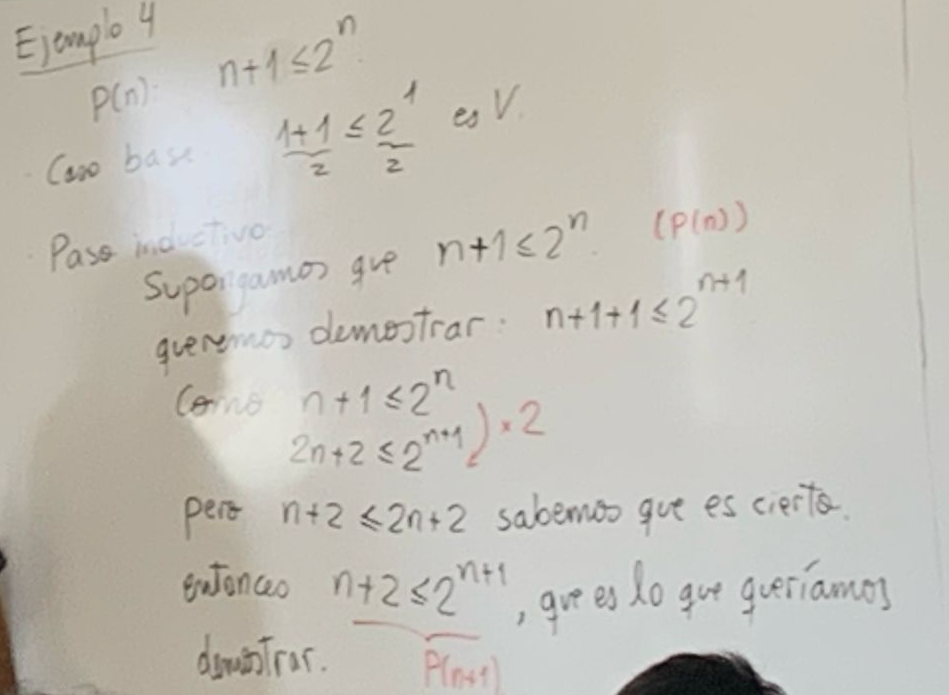 Ejemplo 4
P(n): n+1 ≤ 2^n.
· Caso base 1+1 ≤ 2^1 es V.
2 2
· Paso inductivo
Supongamos que n+1 ≤ 2^n. (P(n))
queremos demostrar: n+1+1 ≤ 2^{n+1}
Como n+1 ≤ 2^n
2n+2 ≤ 2^{n+1} ) × 2
pero n+2 ≤ 2n+2 sabemos que es cierto.
entonces n+2 ≤ 2^{n+1}, que es lo que queríamos
demostrar. P(n+1)